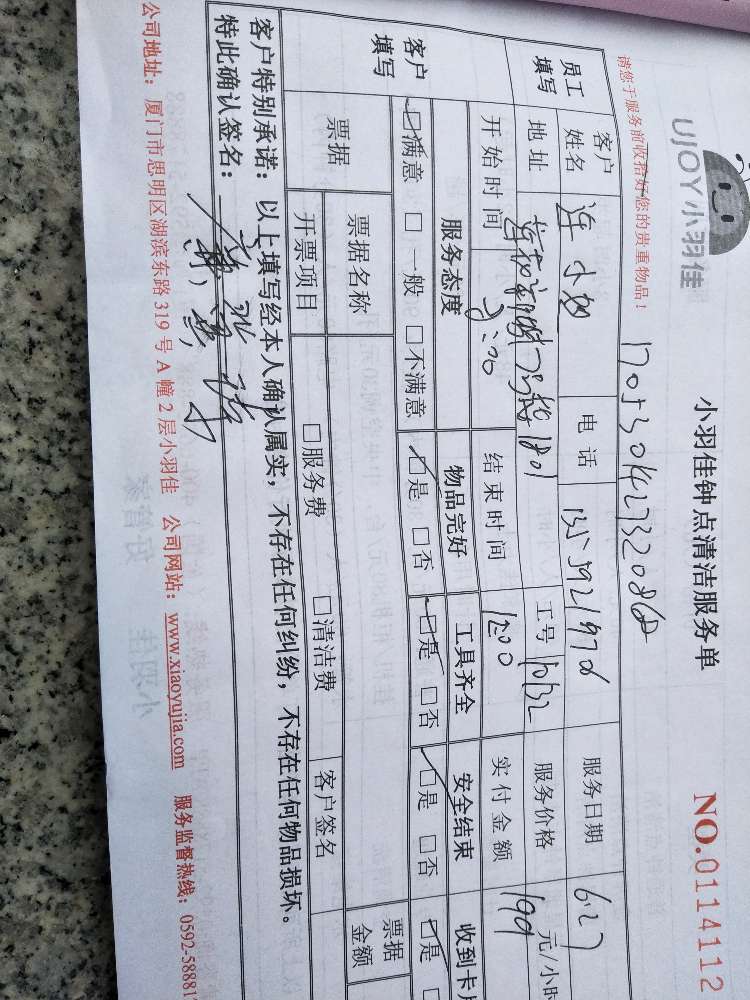 UJOY小羽佳
小羽佳钟点清洁服务单
NO.0114112
请您于服务前收拾好您的贵重物品！
员工填写
客户姓名 连小姐 电话 服务日期 6.27
地址 1801 工号 服务价格 元/小时
开始时间 结束时间 1200 实付金额 199
客户填写
服务态度 物品完好 工具齐全 安全结束 收到卡片
□满意 □一般 □不满意 □是 □否 □是 □否 □是 □否 □是
票据 票据名称 票据金额
开票项目 □服务费 □清洁费 客户签名
客户特别承诺：以上填写经本人确认属实，不存在任何纠纷，不存在任何物品损坏。
特此确认签名：
公司地址：厦门市思明区湖滨东路319号A幢2层小羽佳 公司网站：www.xiaoyujia.com 服务监督热线：0592-58881